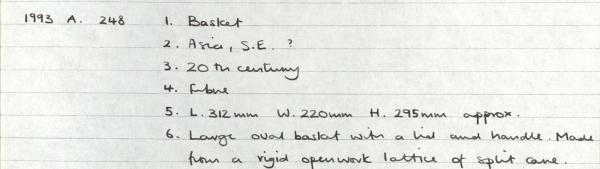 1993 A. 248 1. Basket
2. Asia, S.E. ?
3. 20th century
4. Fibre
5. L. 312mm W. 220mm H. 295mm approx.
6. Large oval basket with a lid and handle. Made
from a rigid openwork lattice of split cane.